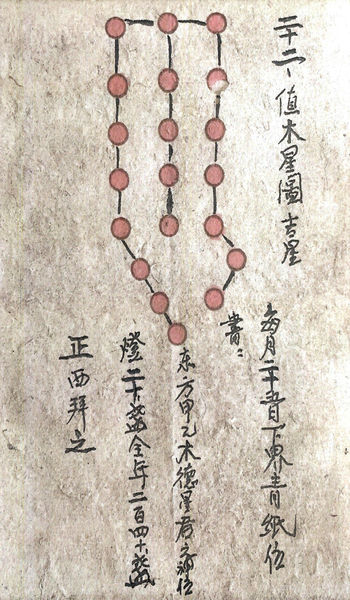 二十二、值木星圖吉星
每月二十五日下界青紙位
書：
东方甲乙木德星君之神位
燈二十盞全年二百四十盞
正西拜之